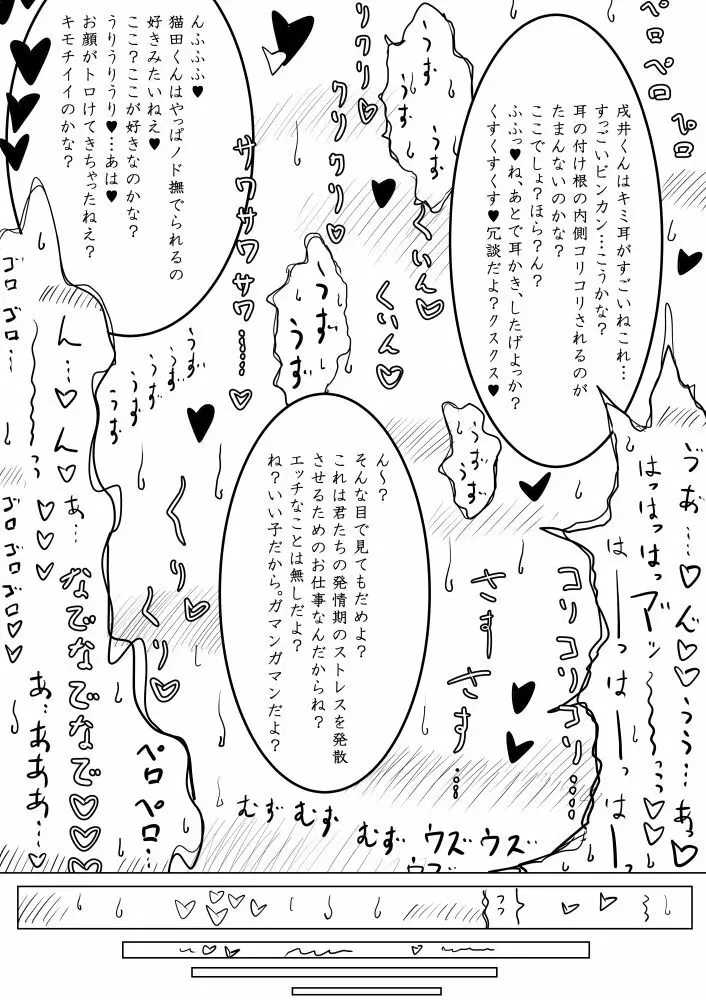 戌井くんはキミ耳がすごいねこれ…
すっごいビンカン…こうかな?
耳の付け根の内側コリコリされるのが
たまんないのかな?
ここでしょ?ほら?ん?
ふふっ♥ね、あとで耳かき、したげよっか?
くすくすくす♥冗談だよ?クスクス♥
んふふふ♥
猫田くんはやっぱノド撫でられるの
好きみたいねえ♥
ここ?ここが好きなのかな?
うりうりうり♥…あは♥
お顔がトロけてきちゃったねえ?
キモチイイのかな?
ん〜?
そんな目で見てもだめよ?
これは君たちの発情期のストレスを発散
させるためのお仕事なんだからね?
エッチなことは無しだよ?
ね?いい子だから。ガマンガマンだよ?
ペロペロ
ペロ
うず
うず
クリクリ♡
クリクリ♡
くいん♡
くいん♡
サワサワサワサワ……♡
うず
うず
うず
うず
うず
うず
うず
うず
ゴロ
ゴロゴロ…
ん…♡ん♡
あ…♡♡♡
ゴロゴロゴロ♡♡
くりくり♡
なでなでなで♡♡♡
あ…あああ…
ペロペロ…
はっはっはっ
はーっはーっはー
コリコリコリ……
さすさす……
むずむず
むず
ウズウズ
ウズ
っっ